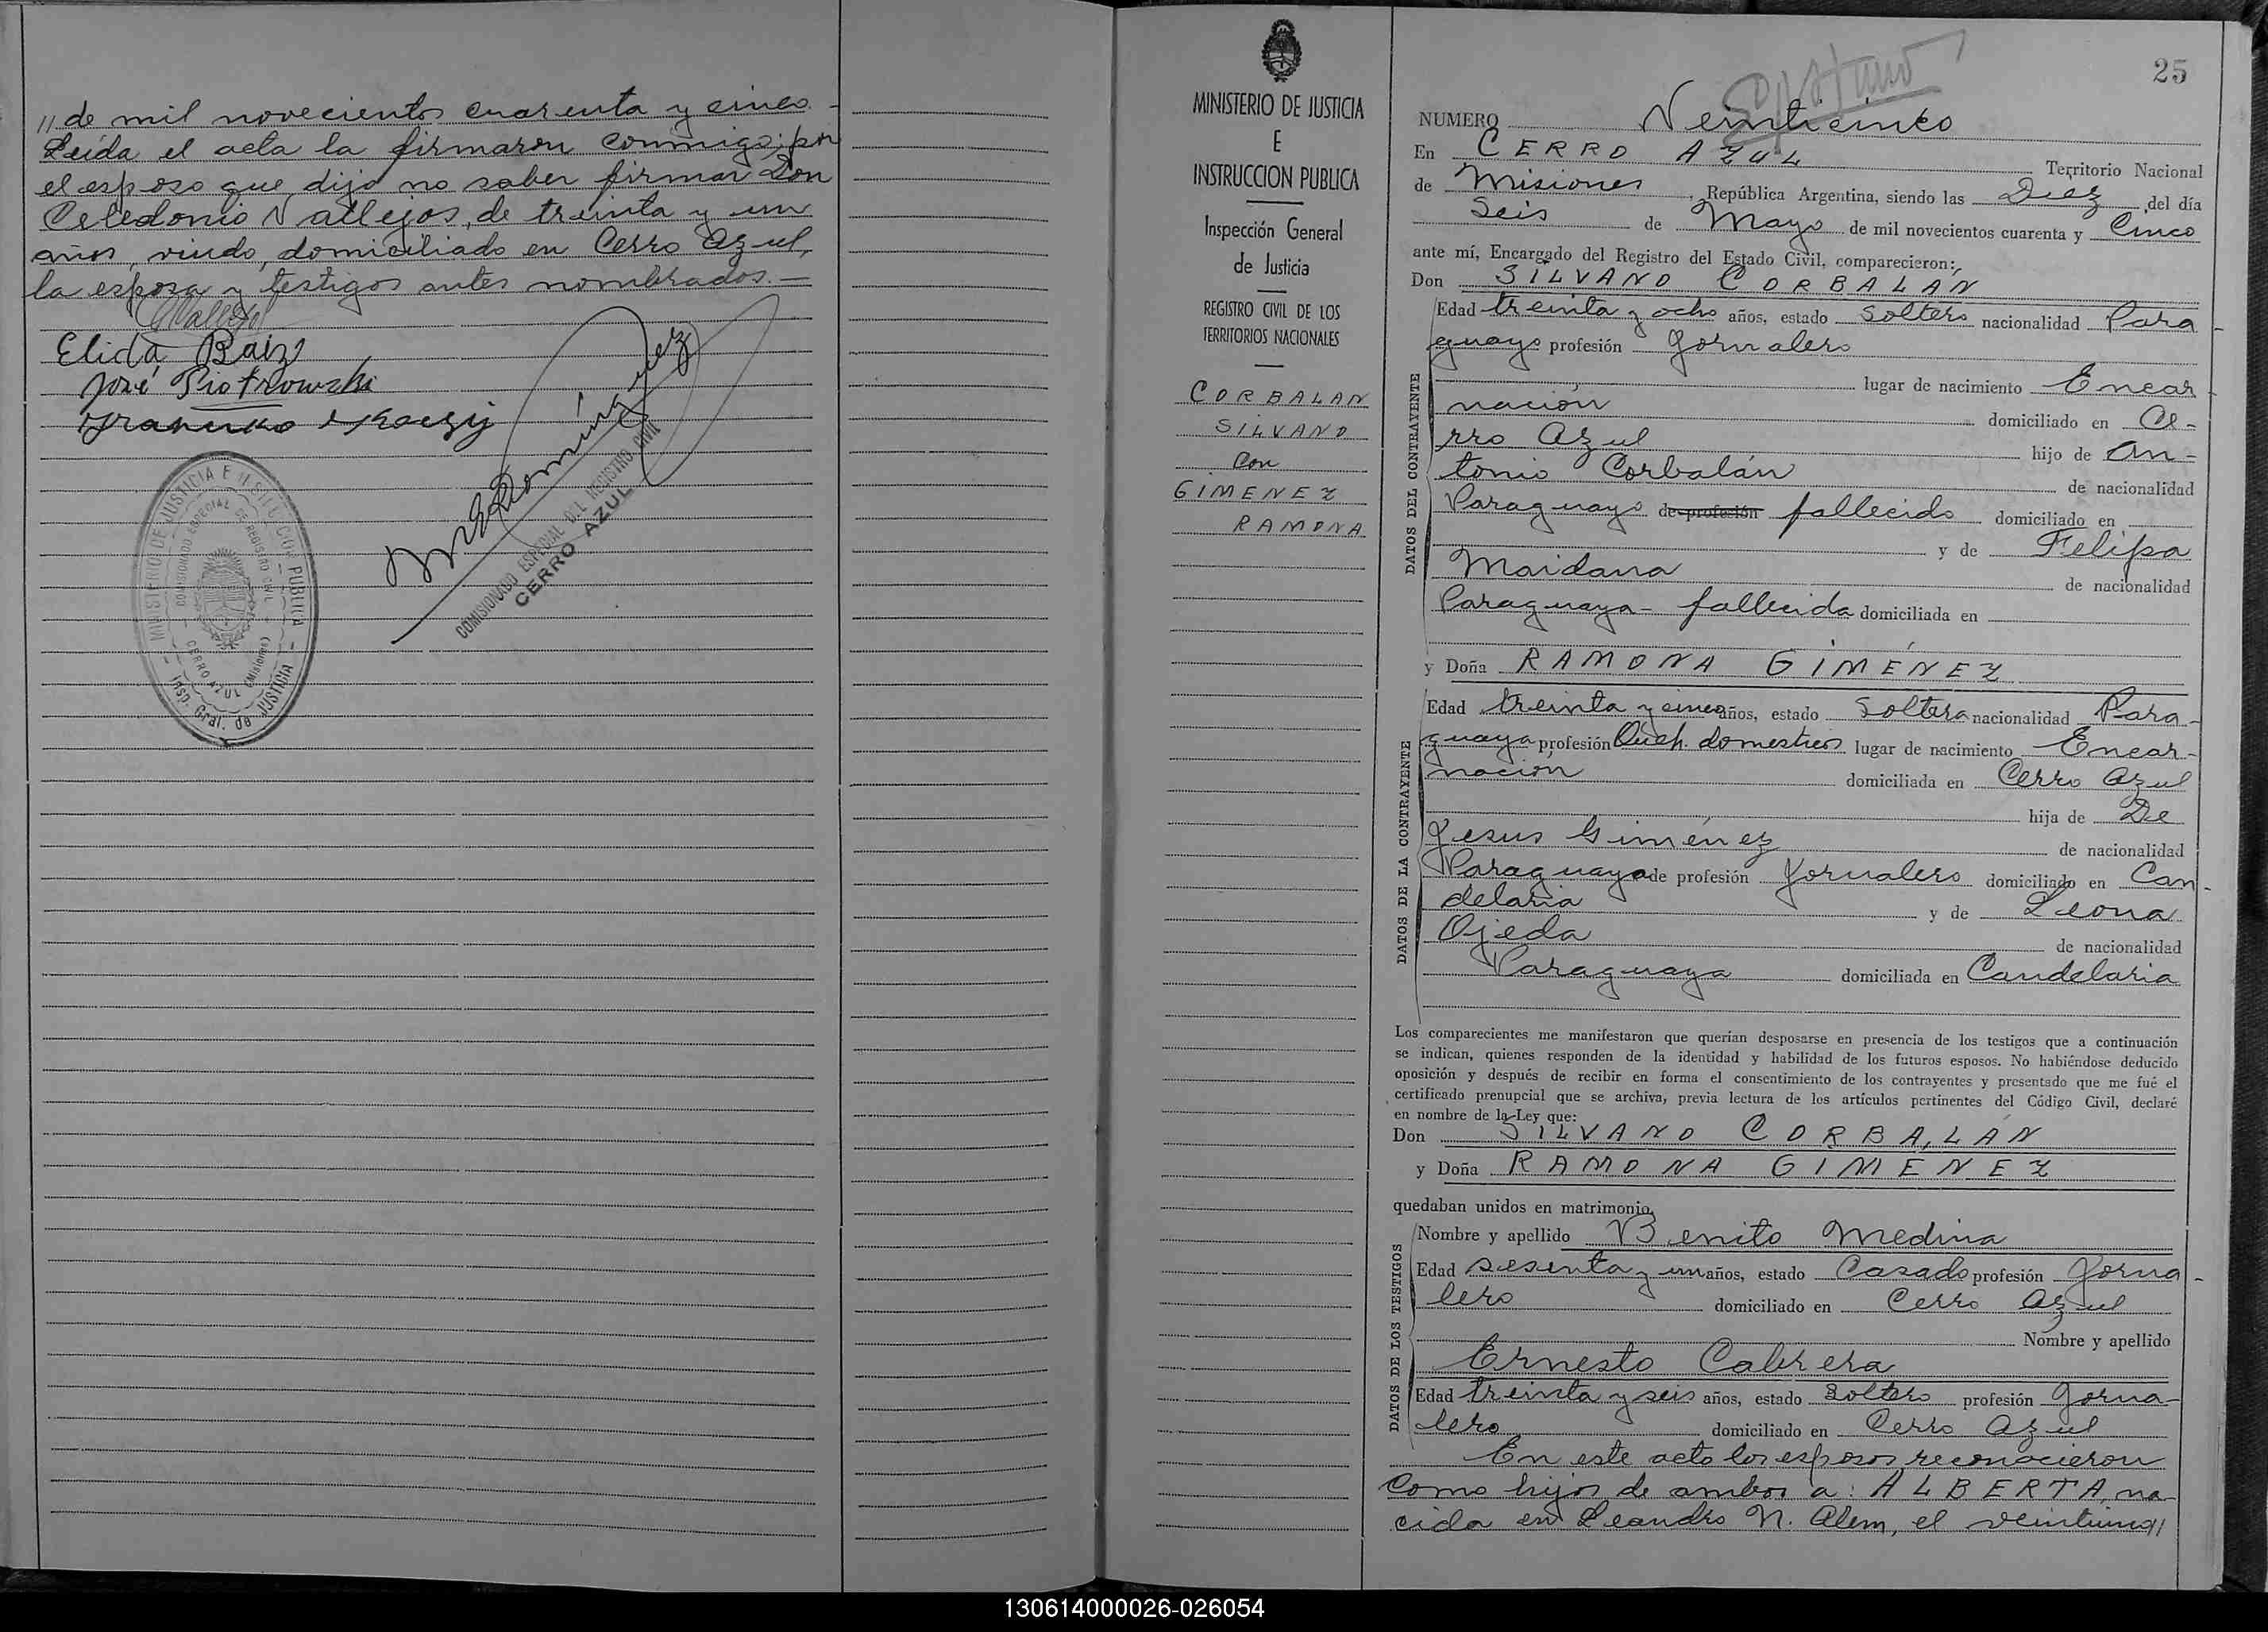 // de mil novecientos cuarenta y cinco.-
Leída el acta la firmaron conmigo; por
el esposo que dijo no saber firmar Don
Celedonio Vallejos, de treinta y un
años, viudo, domiciliado en Cerro Azul,
la esposa y testigos antes nombrados.—
CVallejo
Elida Baiz
José Piotrowski
MEDomínguez
COMISIONADO ESPECIAL DEL REGISTRO CIVIL
CERRO AZUL
MINISTERIO DE JUSTICIA E INSTRUCCION PUBLICA
COMISIONADO ESPECIAL DE REGISTRO CIVIL
CERRO AZUL (Misiones)
Insp. Gral. de JUSTICIA
MINISTERIO DE JUSTICIA
E
INSTRUCCION PUBLICA
Inspección General
de Justicia
REGISTRO CIVIL DE LOS
TERRITORIOS NACIONALES
CORBALAN
SILVANO
Con
GIMENEZ
RAMONA
25
NUMERO Veinticinco
En CERRO AZUL Territorio Nacional
de Misiones, República Argentina, siendo las Diez del día
Seis de Mayo de mil novecientos cuarenta y Cinco
ante mí, Encargado del Registro del Estado Civil, comparecieron:
Don SILVANO CORBALAN
DATOS DEL CONTRAYENTE
Edad treinta y ocho años, estado Soltero nacionalidad Para-
guayo profesión Jornalero
lugar de nacimiento Encar-
nación domiciliado en Ce-
rro Azul hijo de An-
tonio Corbalán de nacionalidad
Paraguayo de profesión fallecido domiciliado en
y de Felipa
Maidana de nacionalidad
Paraguaya- fallecida domiciliada en
y Doña RAMONA GIMÉNEZ
DATOS DE LA CONTRAYENTE
Edad treinta y cinco años, estado Soltera nacionalidad Para-
guaya profesión Queh. domesticos lugar de nacimiento Encar-
nación domiciliada en Cerro Azul
hija de De
Jesus Giménez de nacionalidad
Paraguayo de profesión Jornalero domiciliado en Can-
delaria y de Leona
Ojeda de nacionalidad
Paraguaya domiciliada en Candelaria
Los comparecientes me manifestaron que querían desposarse en presencia de los testigos que a continuación
se indican, quienes responden de la identidad y habilidad de los futuros esposos. No habiéndose deducido
oposición y después de recibir en forma el consentimiento de los contrayentes y presentado que me fué el
certificado prenupcial que se archiva, previa lectura de los artículos pertinentes del Código Civil, declaré
en nombre de la Ley que:
Don SILVANO CORBALÁN
y Doña RAMONA GIMÉNEZ
quedaban unidos en matrimonio.
DATOS DE LOS TESTIGOS
Nombre y apellido Benito Medina
Edad sesenta y un años, estado Casado profesión Jorna-
lero domiciliado en Cerro Azul
Nombre y apellido
Ernesto Cabrera
Edad treinta y seis años, estado Soltero profesión Jorna-
lero domiciliado en Cerro Azul
En este acto los esposos reconocieron
como hijos de ambos a: ALBERTA, na-
cida en Leandro N. Alem, el veintiuno//
130614000026-026054